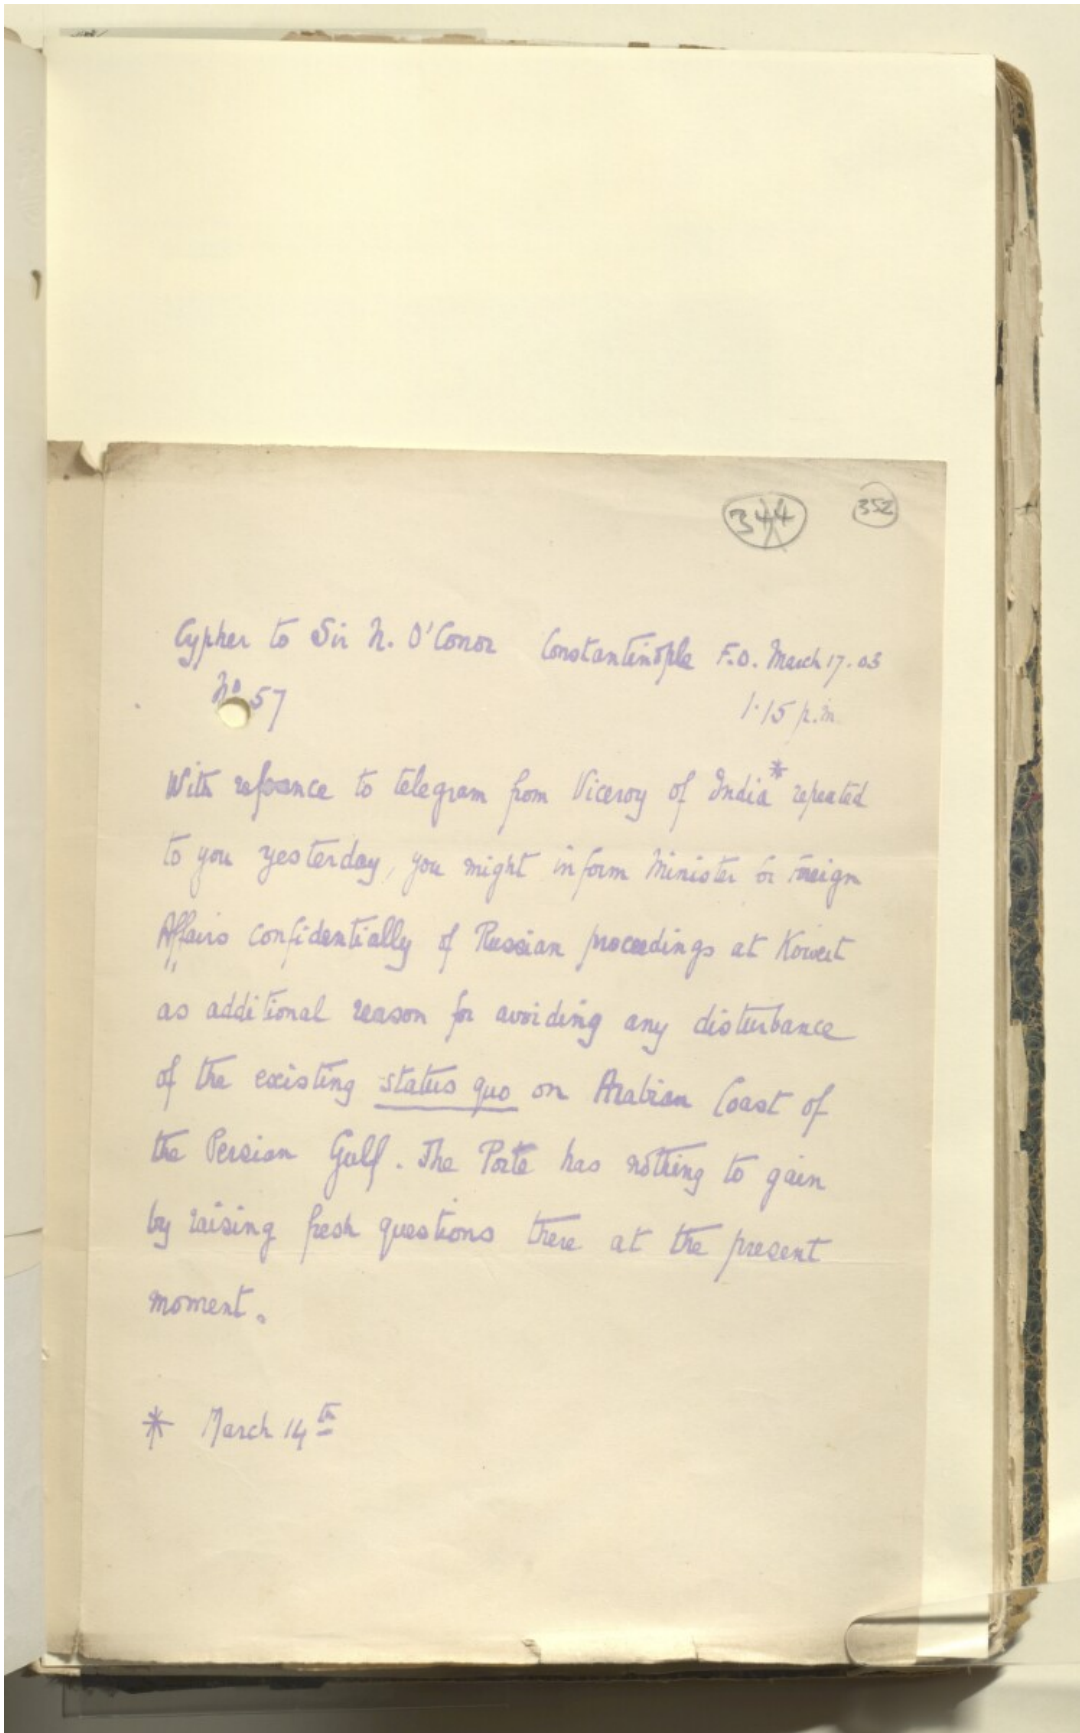 344
352
Cypher to Sir N. O'Conor Constantinople F.O. March 17. 03
No 57 1.15 p.m.
With reference to telegram from Viceroy of India* repeated
to you yesterday, you might inform Minister for Foreign
Affairs confidentially of Russian proceedings at Koweit
as additional reason for avoiding any disturbance
of the existing status quo on Arabian Coast of
the Persian Gulf. The Porte has nothing to gain
by raising fresh questions there at the present
moment.
* March 14th